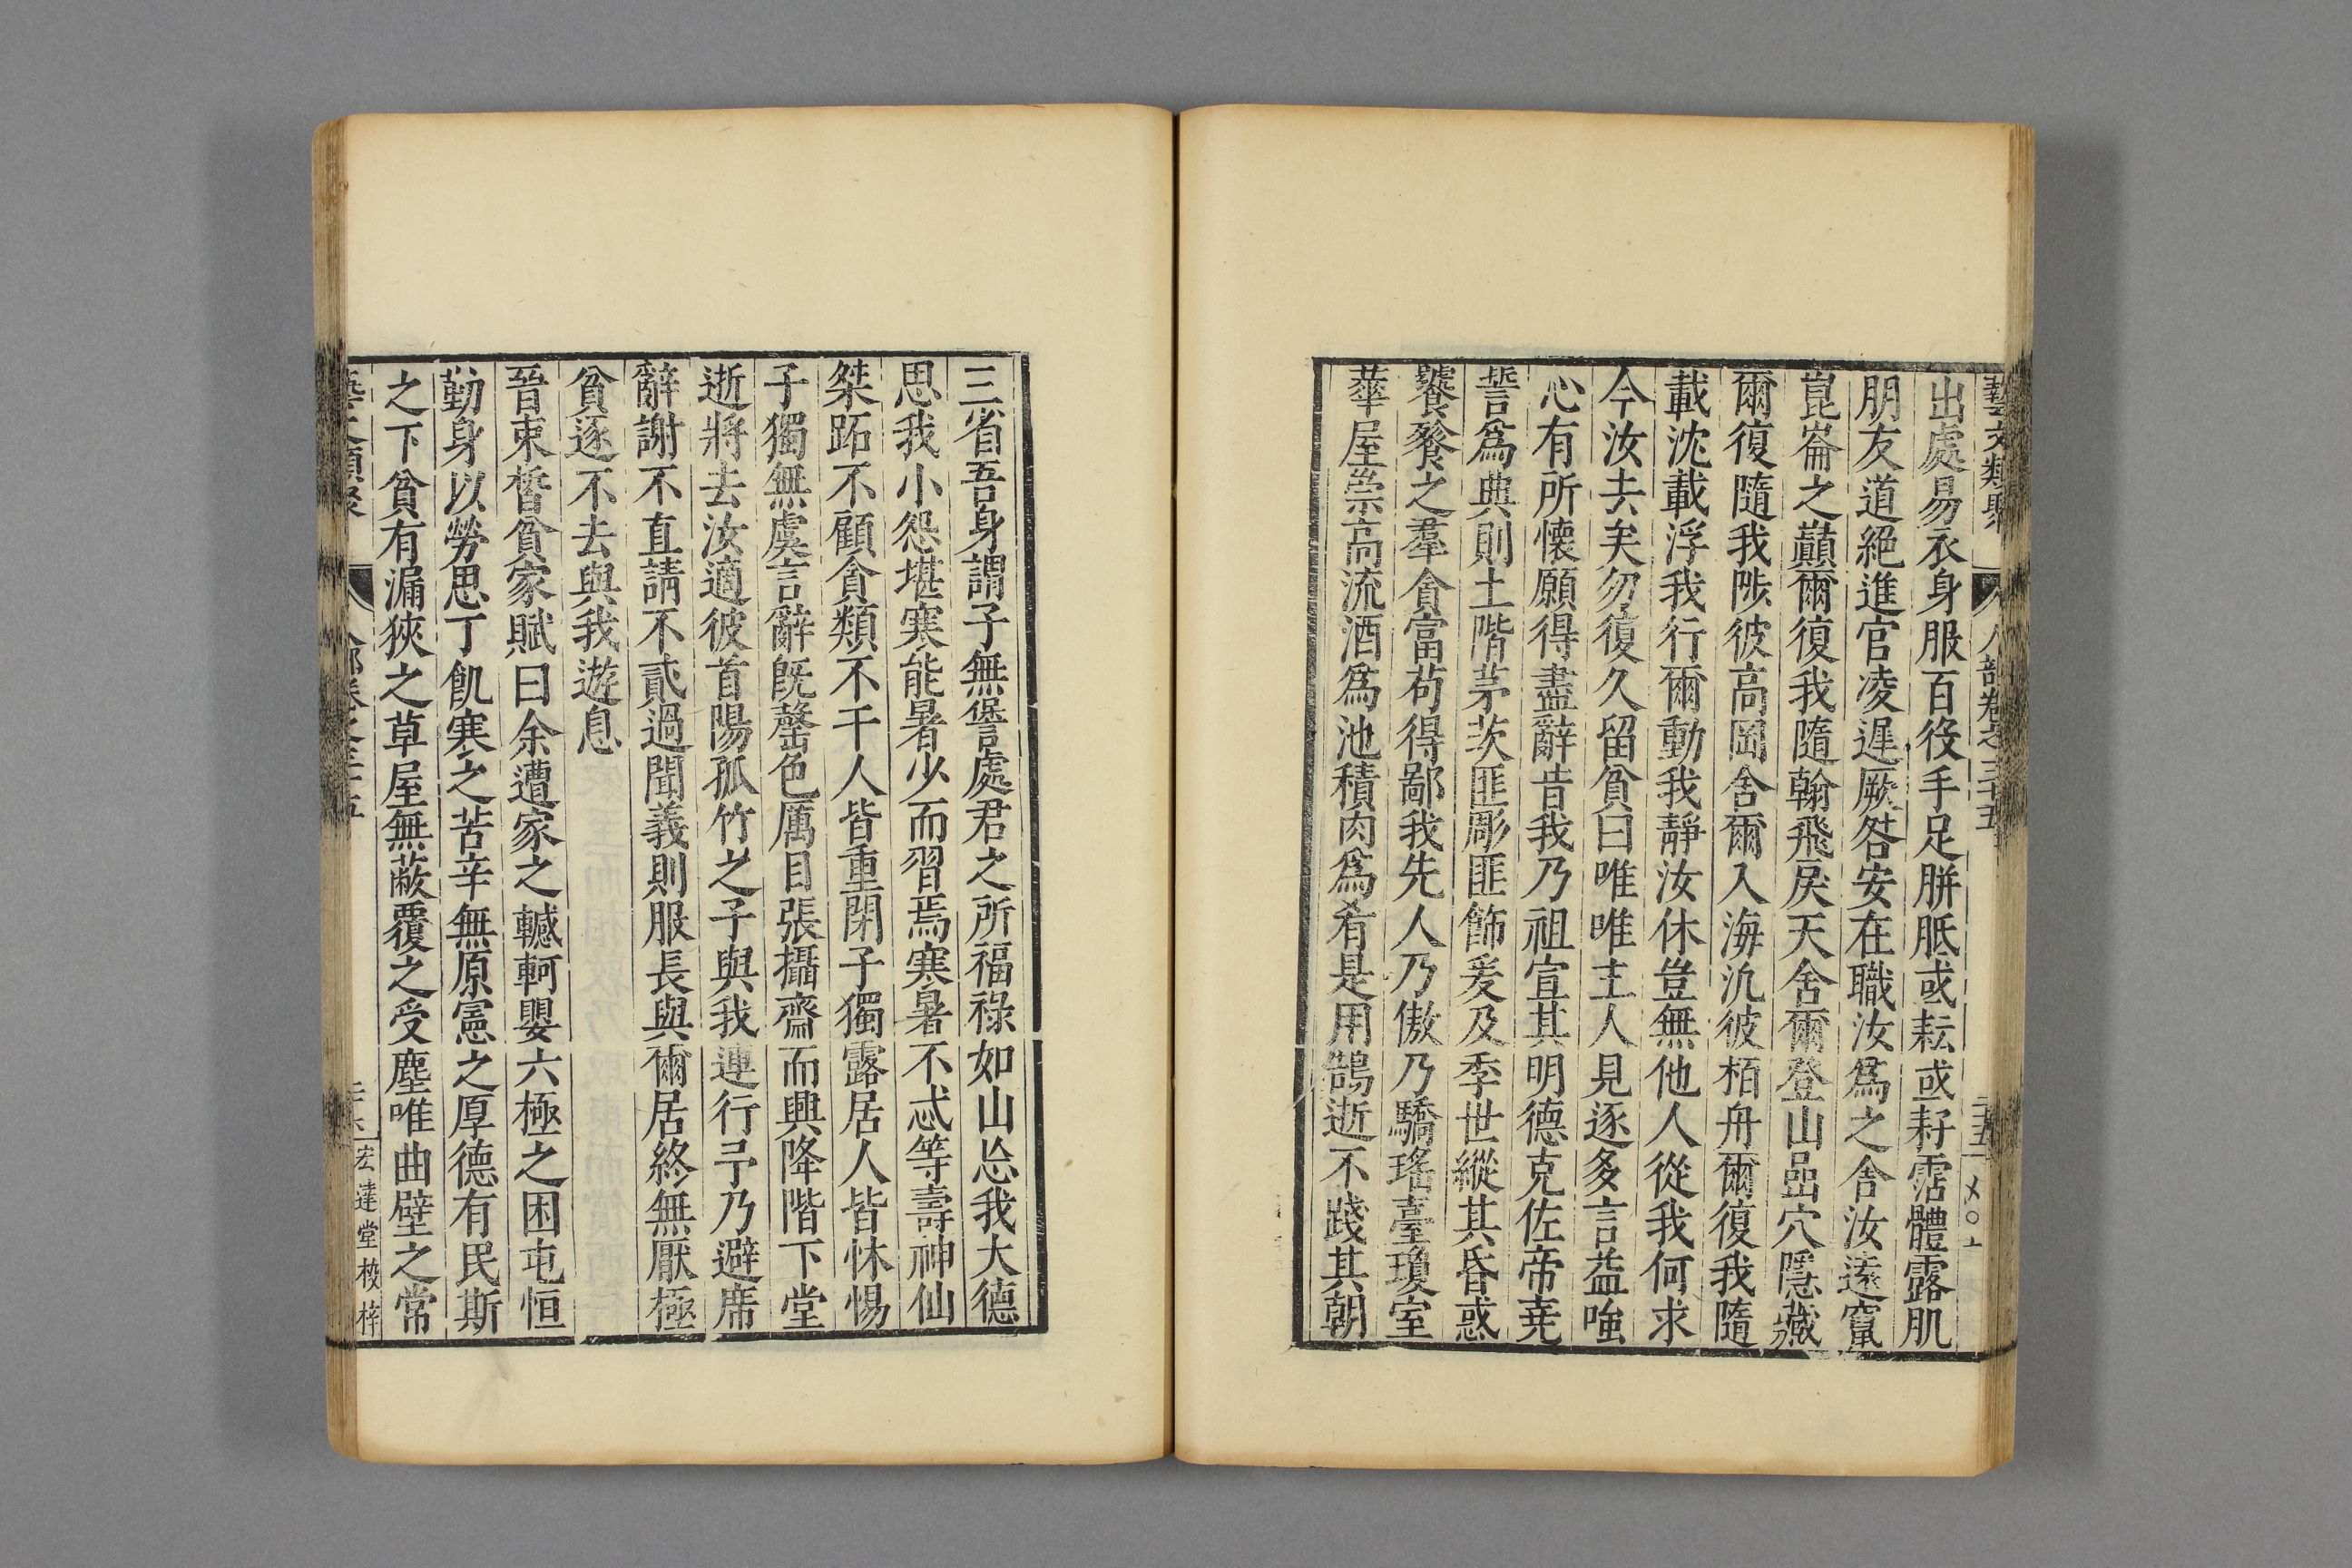 藝文類聚 人部卷之三十五 二十五
出處易衣身服百役手足胼胝或耘或耔霑體露肌
朋友道絕進官凌遲厥咎安在職汝爲之舍汝遠竄
崑崙之巔爾復我隨翰飛戾天舍爾登山巖穴隱藏
爾復隨我陟彼高岡舍爾入海汎彼栢舟爾復我隨
載沈載浮我行爾動我靜汝休豈無他人從我何求
今汝去矣勿復久留貧曰唯唯主人見逐多言益嗤
心有所懷願得盡辭昔我乃祖宣其明德克佐帝堯
誓爲典則土階茅茨匪彫匪飾爰及季世縱其昏惑
饕餮之羣貪富茍得鄙我先人乃傲乃驕瑤臺瓊室
華屋崇高流酒爲池積肉爲肴是用鵠逝不踐其朝
三省吾身謂子無諐處君之所福祿如山忘我大德
思我小怨堪寒能暑少而習焉寒暑不忒等壽神仙
桀跖不顧貪類不干人皆重閉子獨露居人皆怵惕
子獨無虞言辭旣罄色厲目張攝齊而興降階下堂
逝將去汝適彼首陽孤竹之子與我連行予乃避席
辭謝不直請不貳過聞義則服長與爾居終無厭極
貧逐不去與我遊息
晉束皙貧家賦曰余遭家之轗軻嬰六極之困屯恒
勤身以勞思丁飢寒之苦辛無原憲之厚德有民斯
之下貧有漏狹之草屋無蔽覆之受塵唯曲壁之常
宏達堂校梓